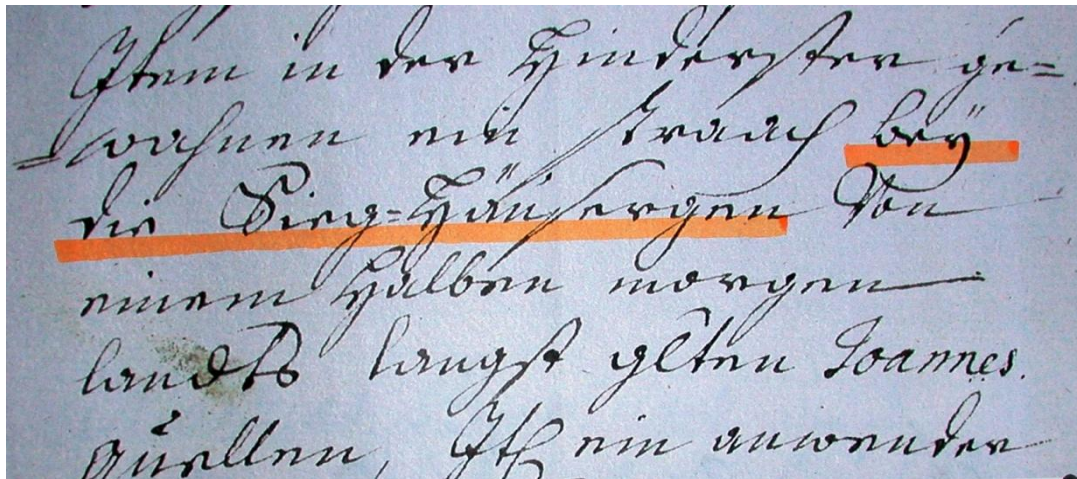 Item in der Hinderster ge=
=wahnen ein straach beÿ
die Sieg=Häüsergen Von
einem Halben morgen
landts langst glten Joannes.
Quellen, It ein anwender